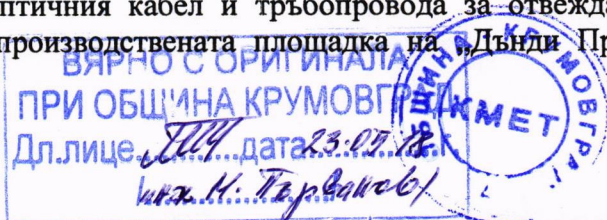 птичния кабел и тръбопровода за отвежда
производствената площадка на „Дънди Пр
ВЯРНО С ОРИГИНАЛА
ПРИ ОБЩИНА КРУМОВГРАД
Дл.лице..........дата 23.05.18 г.
инж Н. Първанов)
ОБЩИНА КРУМОВГРАД
КМЕТ